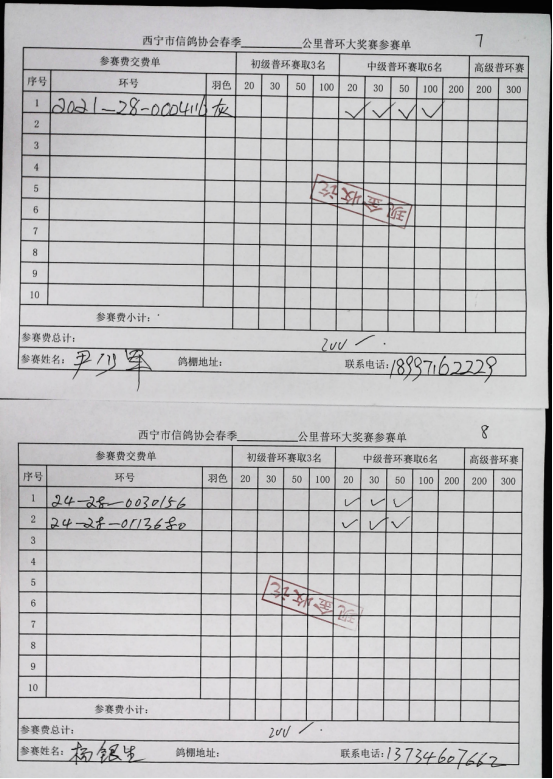 西宁市信鸽协会春季________公里普环大奖赛参赛单 7
参赛费交费单 初级普环赛取3名 中级普环赛取6名 高级普环赛
序号 环号 羽色 20 30 50 100 20 30 50 100 200 200 300
1 2021-28-0004116 灰 ✓ ✓ ✓ ✓
2
3
4
5
6
7
8
9
10
现金收讫
参赛费小计:
参赛费总计: 200
参赛姓名: 尹 军 鸽棚地址: 联系电话: 18997162229
西宁市信鸽协会春季________公里普环大奖赛参赛单 8
参赛费交费单 初级普环赛取3名 中级普环赛取6名 高级普环赛
序号 环号 羽色 20 30 50 100 20 30 50 100 200 200 300
1 24-28-0030156 ✓ ✓ ✓
2 24-28-0113680 ✓ ✓ ✓
3
4
5
6
7
8
9
10
现金收讫
参赛费小计:
参赛费总计: 200
参赛姓名: 杨银生 鸽棚地址: 联系电话: 13734607662